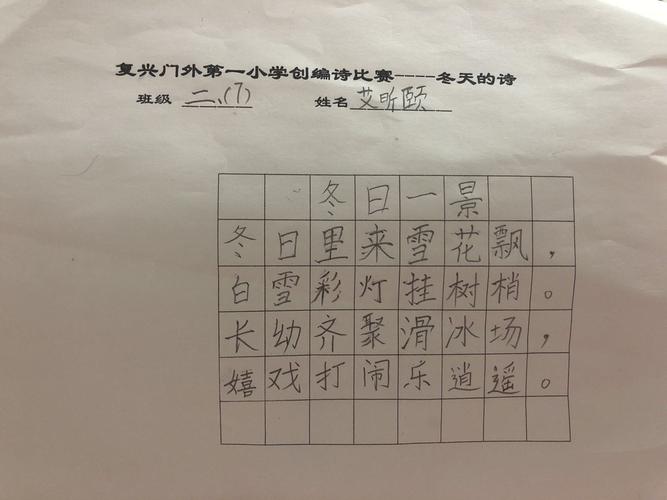 复兴门外第一小学创编诗比赛----冬天的诗
班级 二、(7) 姓名 艾昕颐
冬日一景
冬日里来雪花飘，
白雪彩灯挂树梢。
长幼齐聚滑冰场，
嬉戏打闹乐逍遥。